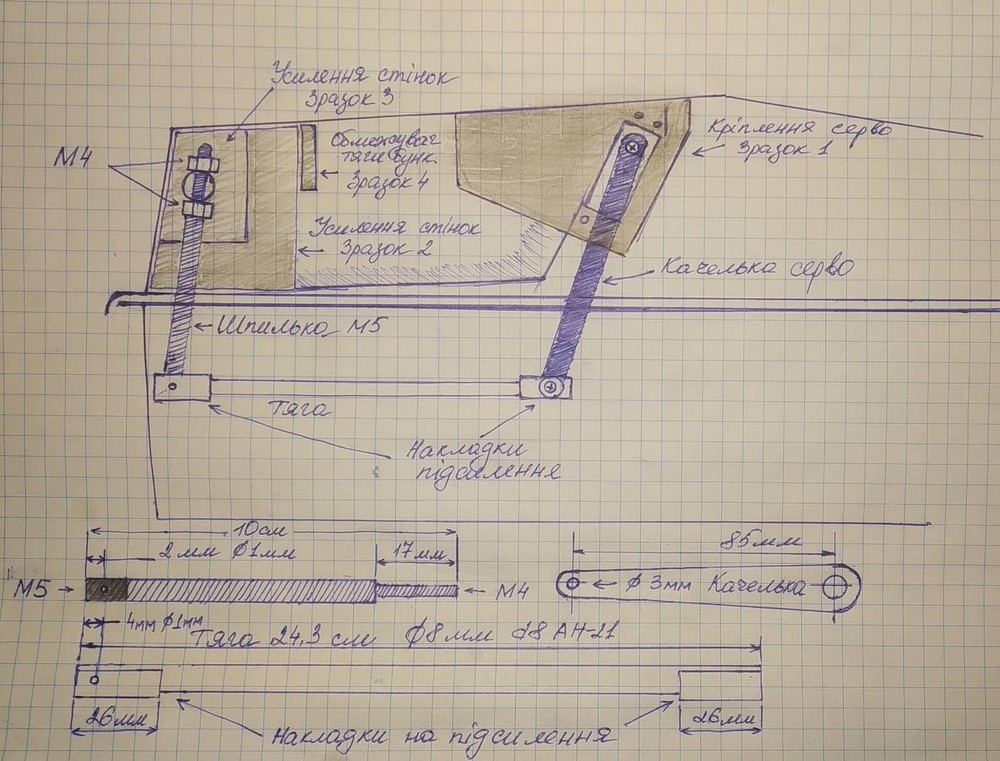 Усилення стінок
Зразок 3
М4
Обмежувач
тяги бунк.
Зразок 4
Кріплення серво
Зразок 1
Усилення стінок
Зразок 2
Качелька серво
Шпилька М5
Тяга
Накладки
підсилення
10см
2мм ϕ1мм
17мм
85мм
М5
М4
ϕ 3мм Качелька
4мм ϕ1мм
Тяга 24.3 см ϕ8мм
26мм
26мм
Накладки на підсилення